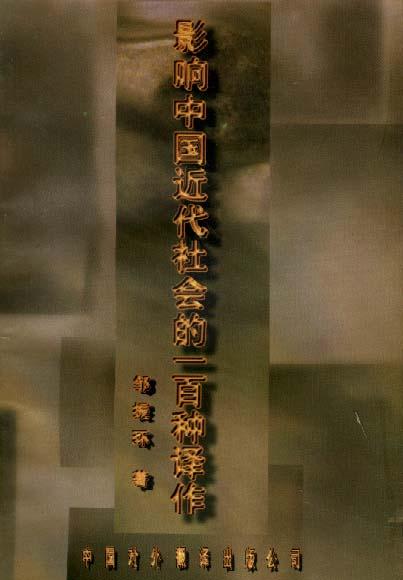 影响中国近代社会的一百种译作
邹振环 著
中国对外翻译出版公司